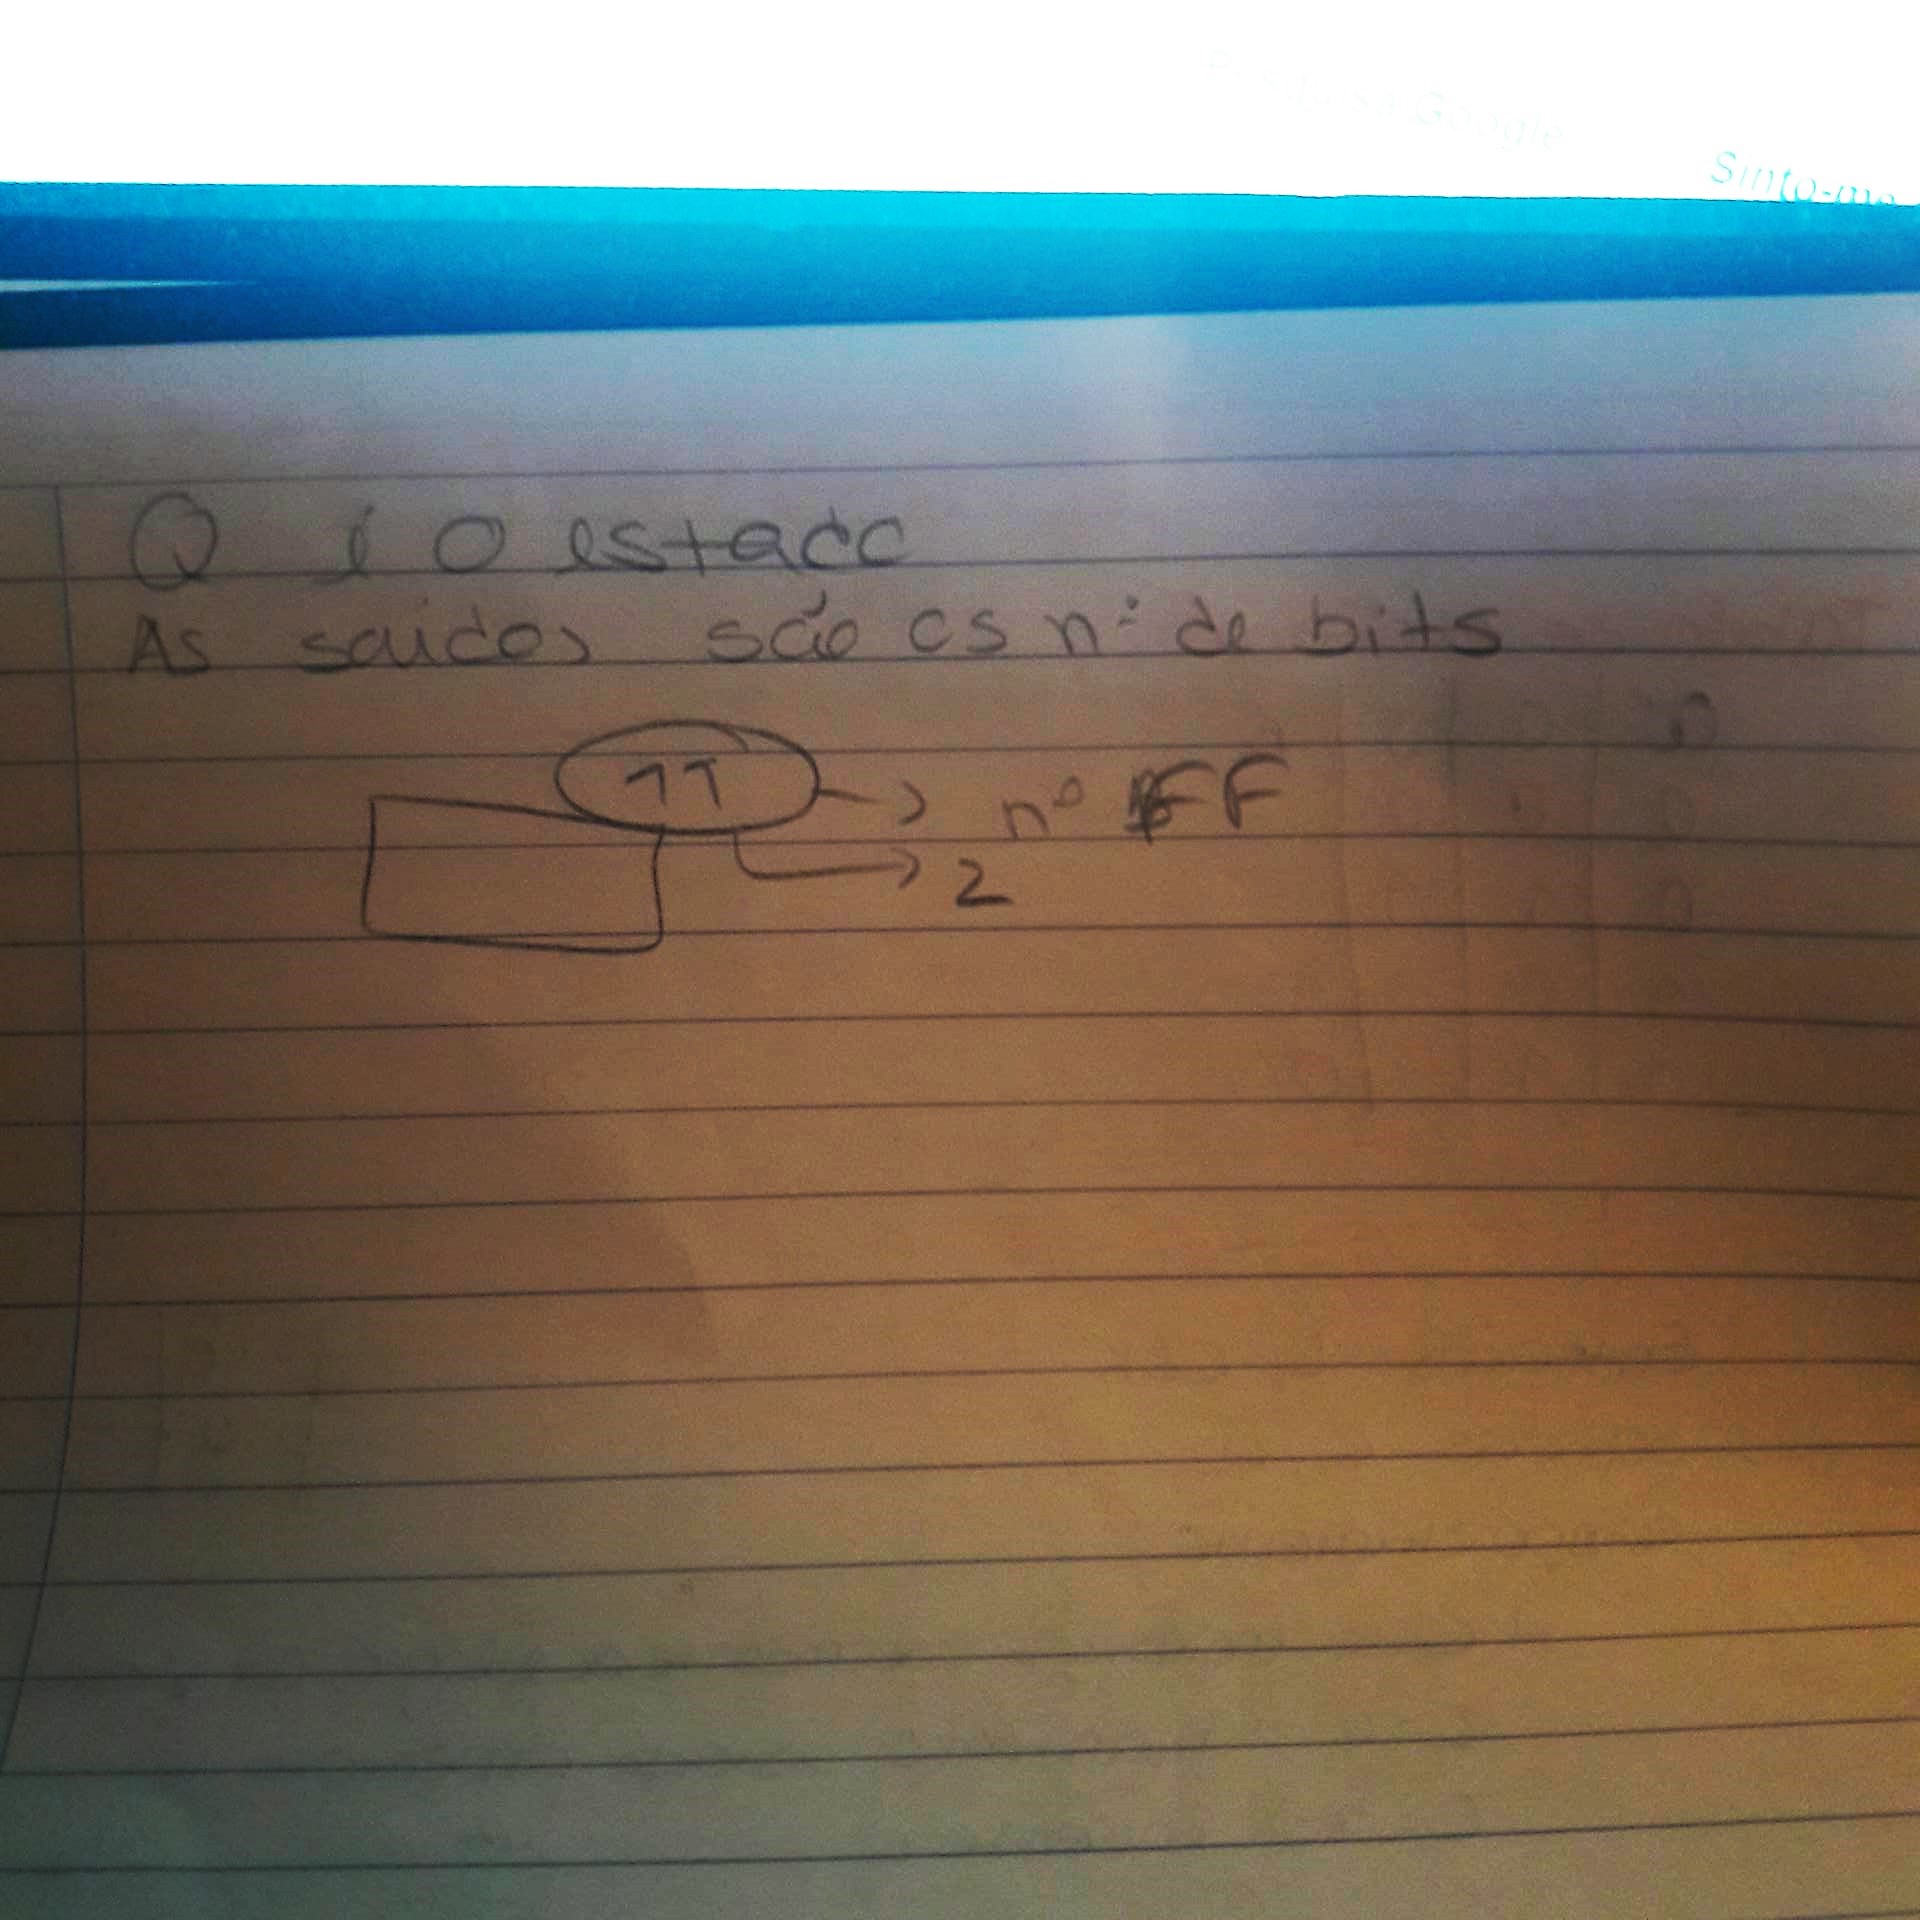 Pesquisa Google
Sinto-me
Q é o estado
As saídas são os nº de bits
11 → nº FF
→ 2